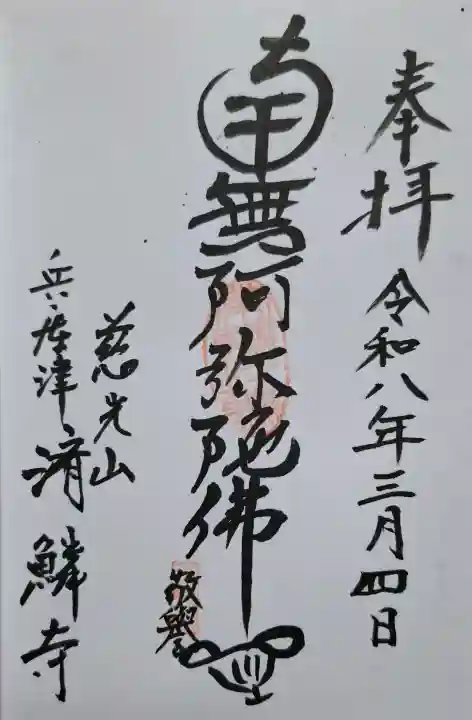 奉拝
令和八年三月四日
南無阿弥陀佛
敬譽
慈光山
兵庫津済鱗寺